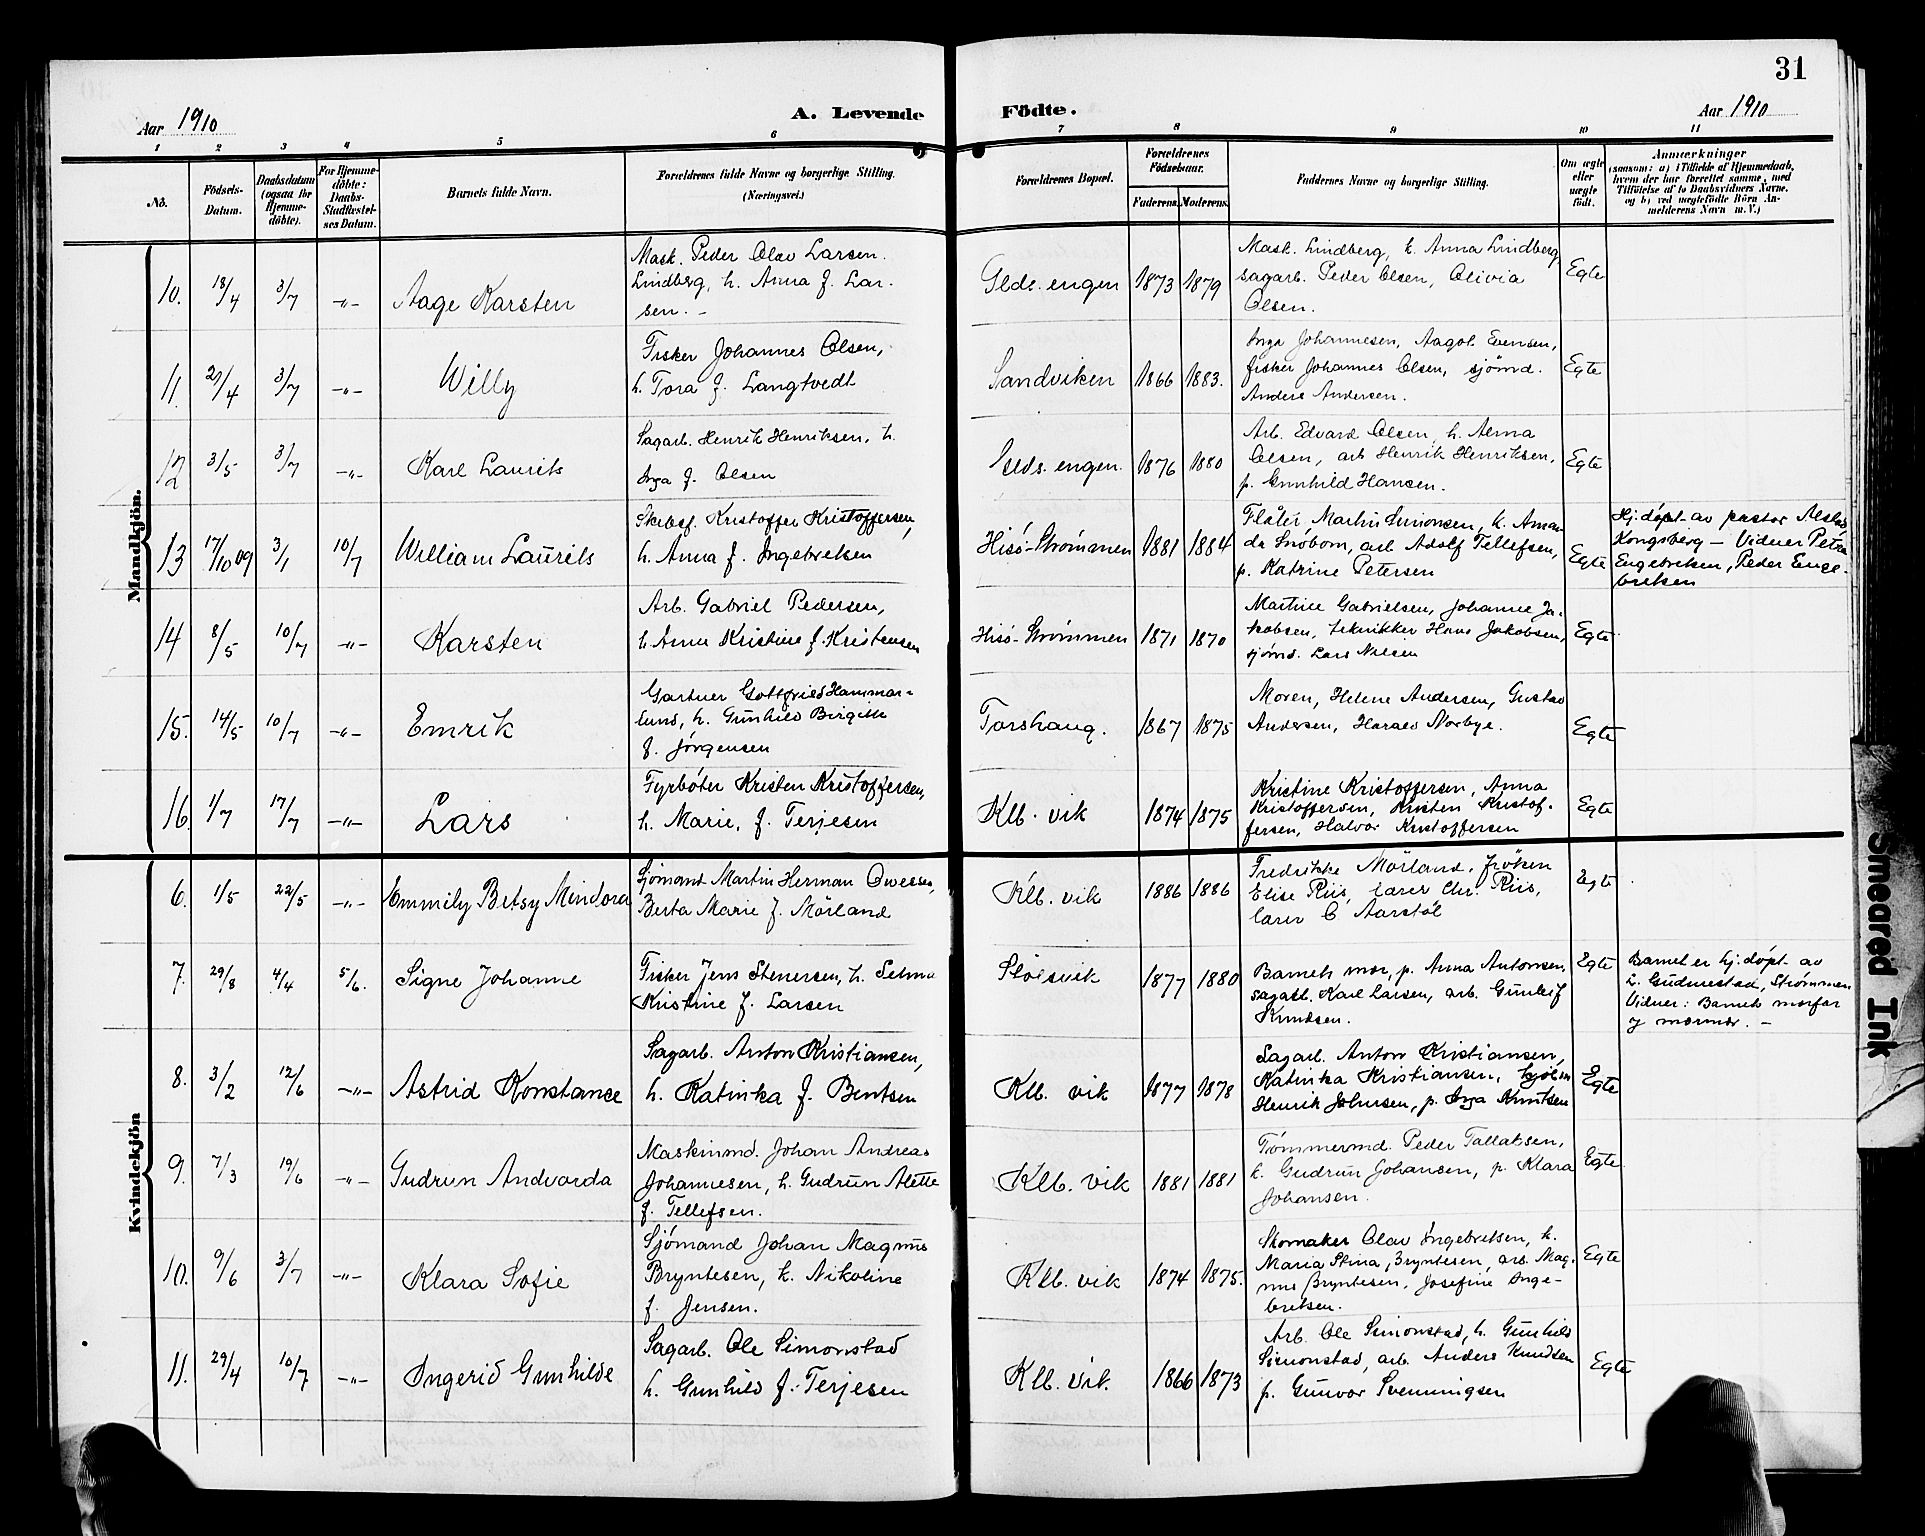 31
Aar 1910
A. Levende Födte.
Aar 1910
1 2 3 4 5 6 7 8 9 10 11
No.
Födsels-
Datum.
Daabsdatum
(ogsaa for
Hjemme-
döbte).
For Hjemme-
döbte:
Daabs-
Stadfæstel-
ses Datum.
Barnets fulde Navn.
Forældrenes fulde Navne og borgerlige Stilling.
(Næringsvei.)
Forældrenes Bopæl.
Forældrenes
Födselsaar.
Faderens. Moderens.
Faddernes Navne og borgerlige Stilling.
Om ægte
eller
uægte
födt.
Anmærkninger
(saasom: a) i Tilfælde af Hjemmedaab,
hvem der har forrettet samme, med
Tilföielse af to Daabsvidners Navne.
og b) ved uægtefödte Börn An-
melderens Navn m. V.)
Mandkjön.
10. 18/4 3/7 -"- Aage Karsten
Mask. Peder Olav Larsen
Lindberg, h. Anna f. Lar-
sen. -
Glds. engen 1873 1879
Mask. Lindberg, h. Anna Lindberg,
sagarb. Peder Olsen, Olivia
Olsen.
Egte
11. 27/4 3/7 -"- Willy
Fisker Johannes Olsen,
h. Tora f. Langtvedt
Sandviken 1866 1883.
Inga Johannesen, Aagot Evensen,
fisker Johannes Olsen, sjömd.
Anders Andersen.
Egte
12 3/5 3/7 -"- Karl Laurits
Sagarb. Henrik Henriksen, h.
Inga f. Olsen
Glds. engen. 1876 1880
Arb. Edvard Olsen, h. Anna
Olsen, arb Henrik Henriksen,
p. Gunhild Hansen.
Egte
13 17/10 09 3/1 10/7 William Laurits
Skibsf. Kristoffer Kristoffersen,
h. Anna f. Ingebretsen
Hisö-Strømmen 1881 1884
Martin Simonsen, h. Aman-
da Snöbom, arb Adolf Tellefsen,
p. Katrine Petersen
Egte
Hj.döpt av pastor
Kongsberg - Vidner Petra
Engebretsen, Peder Enge-
bretsen
14 8/5 10/7 -"- Karsten
Arb. Gabriel Pedersen,
h. Anna Kristine f. Kristensen
Hisö-Strømmen 1871 1870
Martine Gabrielsen, Johanne Ja-
kobsen, tekniker Hans Jakobsen,
sjömd. Lars Nilsen
Egte
15. 14/5 10/7 -"- Emrik
Gartner Gottfried Hammar-
lund, h. Gunhild Birgitte
f. Jörgensen
Torshaug. 1867 1875
Moren, Helene Andersen, Gustav
Andersen, Harald Norbye.
Egte
16. 1/7 17/7 -"- Lars
Fyrböter Kristen Kristoffersen,
h. Marie, f. Terjesen
Klb. vik 1874 1875
Kristine Kristoffersen, Anna
Kristoffersen, Kristen Kristof-
fersen, Halvor Kristoffersen
Egte
Kvindekjön
6. 1/5 22/5 -"- Emmily Betsy Mindora
Sjömand Martin Herman Owesen,
Berta Marie f. Mörland
Klb. vik 1886 1886
Fredrikke Mörland, fröken
Elise Riis, lærer Chr. Riis,
lærer C Aarstöl
Egte
7. 29/8 4/4 5/6. Signe Johanne
Fisker Jens Stenersen, h. Selma
Kristine f. Larsen
Stölsvik 1877 1880
Barnets mor, p. Anna Antonsen,
sagarb. Karl Larsen, arb. Gunleif
Knudsen.
Egte
Barnet er hj.döpt av
L. Gudmestad, Strømmen
Vidner: Barnets morfar
og mormor. -
8. 3/2 12/6 -"- Astrid Konstance
Sagarb. Anton Kristiansen,
h. Katinka f. Bentsen
Klb. vik 1877 1878
Sagarb. Anton Kristiansen,
Katinka Kristiansen,
Henrik Johnsen, p. Inga Knutsen
Egte
9. 7/3 19/6 -"- Gudrun Andvarda
Maskinmd. Johan Andreas
Johannesen, h. Gudrun Alette
f. Tellefsen.
Klb. vik 1881 1881
Tömmermd. Peder Tallaksen,
h. Gudrun Johansen, p. Klara
Johansen.
Egte
10. 9/6 3/7 -"- Klara Sofie
Sjömand Johan Magnus
Bryntesen, h. Nikoline
f. Jensen.
Klb. vik 1874 1875.
Skomaker Olav Ingebretsen, h.
Maria Stina, Bryntesen, arb. Mag-
nus Bryntesen, Josefine Inge-
bretsen.
Egte
11. 29/4 10/7 -"- Ingerid Gunhilde
Sagarb. Ole Simonstad
h. Gunhild f. Terjesen
Klb. vik. 1866 1873
Arb. Ole Simonstad, h. Gunhild
Simonstad, arb. Anders Knudsen
p. Gunvor Svenningsen
Egte
Smeared Ink